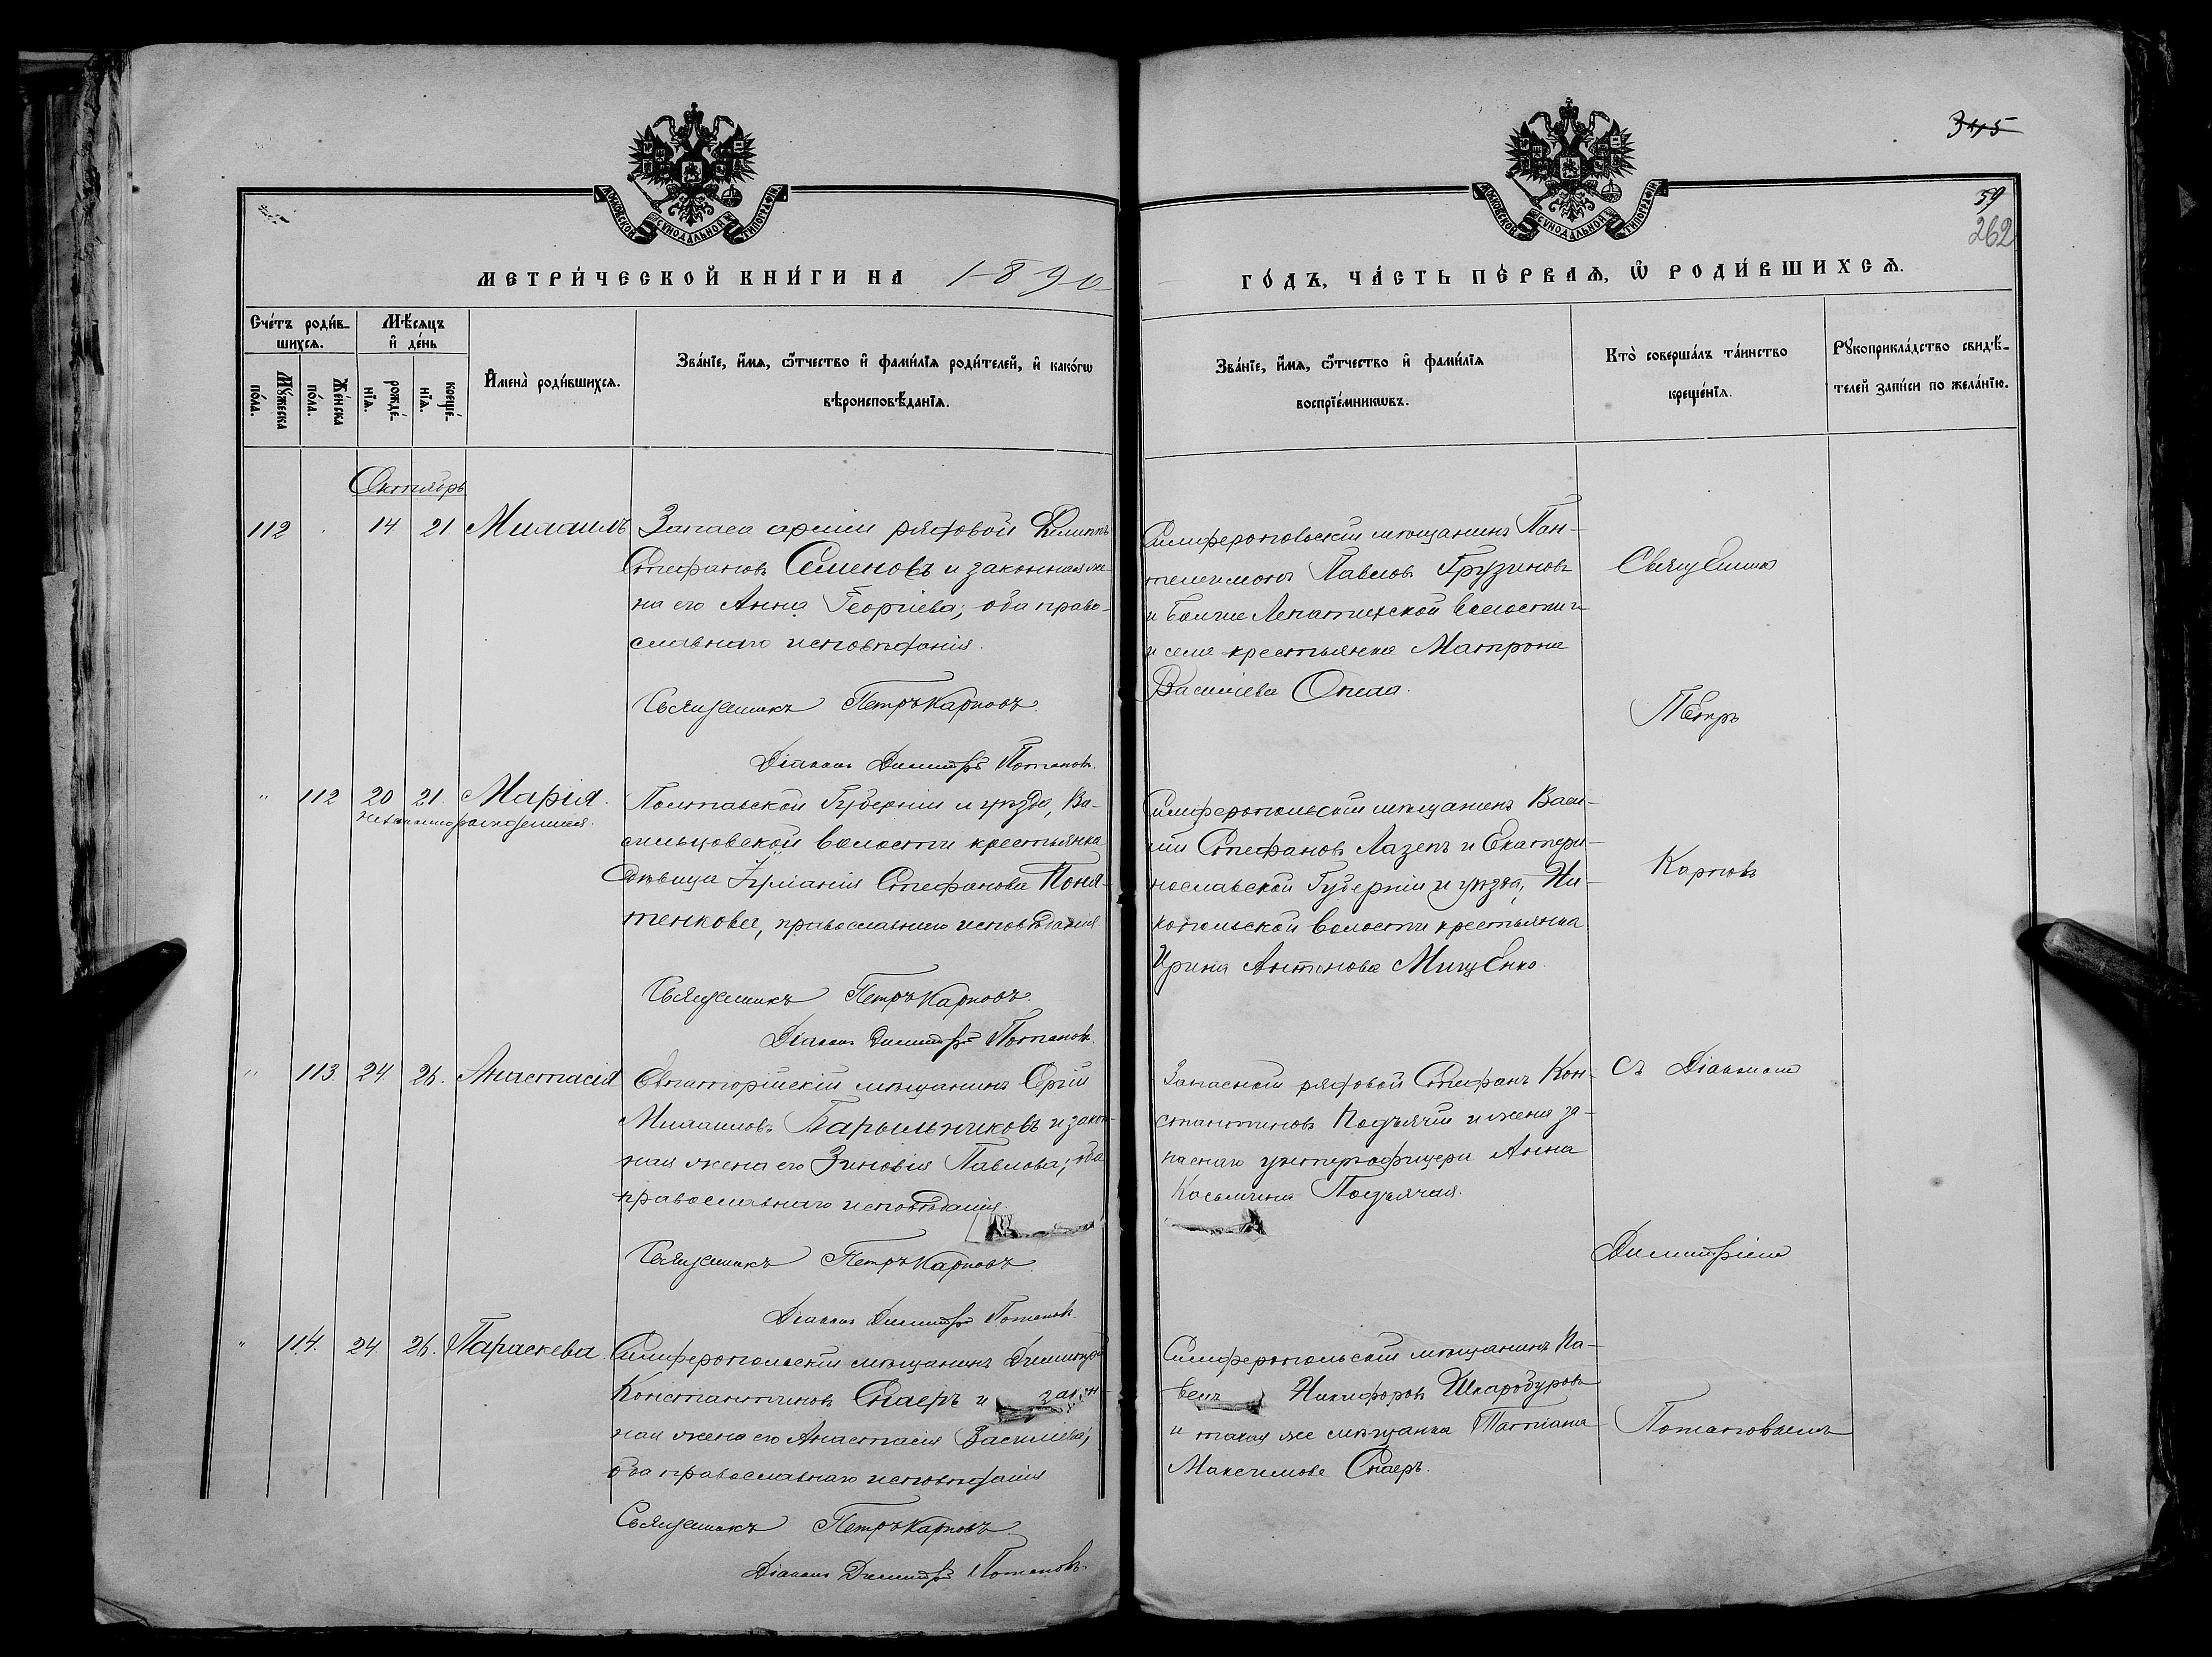 315
59
262
МОСКОВСКОЙ СУНОДАЛЬНОЙ ТИПОГРАФІИ
МОСКОВСКОЙ СУНОДАЛЬНОЙ ТИПОГРАФІИ
МЕТРИ́ЧЕСКОЙ КНИ́ГИ НА 1890
ГО́ДЪ, ЧА́СТЬ ПЕ́РВАѦ, Ѡ РОДИ́ВШИХСѦ.
Сче́тъ роди́в-
шихсѧ.
Мѹ́жеска
по́ла.
Же́нска
по́ла.
Мѣ́сѧцъ
и҆ де́нь
рожде́-
нїѧ.
креще́-
нїѧ.
И҆мена̀ роди́вшихсѧ.
Зва́нїе, и҆́мѧ, ѻ҆́тчество и҆ фами́лїѧ роди́телей, и҆ како́гѡ
вѣроисповѣ́данїѧ.
Зва́нїе, и҆́мѧ, ѻ҆́тчество и҆ фами́лїѧ
воспрїе́мникѡвъ.
Кто̀ соверша́лъ та́инство
креще́нїѧ.
Рѹкоприкла́дство свидѣ́-
телей за́писи по жела́нїю.
Октябрь
112 14 21 Михаилъ
Запаса арміи рядовой Филиппъ
Стефановъ Семеновъ и законная же-
на его Анна Георгіева; оба право-
славнаго исповѣданія.
Священникъ Петръ Карповъ.
Діаконъ Димитрій Потаповъ.
Симферопольскій мѣщанинъ Пан-
телеимонъ Павловъ Грузиновъ
и Больше Лепатихской волости
и села крестьянка Матрона
Василіева
Священникъ
Петръ
" 112 20 21 Марія.
незаконнорожденная.
Полтавской Губерніи и уѣзда, Ва-
сильцовской волости крестьянка
дѣвица Іуліанія Стефанова Поня-
тенкова, православнаго исповѣданія
Священникъ Петръ Карповъ.
Діаконъ Димитрій Потаповъ.
Симферопольскій мѣщанинъ Васи-
лій Стефановъ Лазепъ и Екатери-
нославской Губерніи и уѣзда, Ни-
копольской волости крестьянка
Ирина Антонова Мищенко.
Карповъ
" 113. 24. 26. Анастасія
Евпаторійскій мѣщанинъ
Михаиловъ Барыльниковъ и закон-
ная жена его Зиновія Павлова; оба
православнаго исповѣданія.
Священникъ Петръ Карповъ.
Діаконъ Димитрій Потаповъ.
Запасный рядовой Стефанъ Кон-
стантиновъ Подъячій и жена за-
паснаго унтерофицера Анна
Косьмина Подъячая.
Съ Діакономъ
Димитріемъ
" 114. 24. 26. Параскева.
Симферопольскій мѣщанинъ Димитрій
Константиновъ Снаеръ и закон-
ная жена его Анастасія Василіева;
оба православнаго исповѣданія
Священникъ Петръ Карповъ.
Діаконъ Димитрій Потаповъ.
Симферопольскій мѣщанинъ Па-
велъ Никифоровъ Шкародуровъ
и такая же мѣщанка Татіана
Максимова Снаеръ.
Потаповымъ